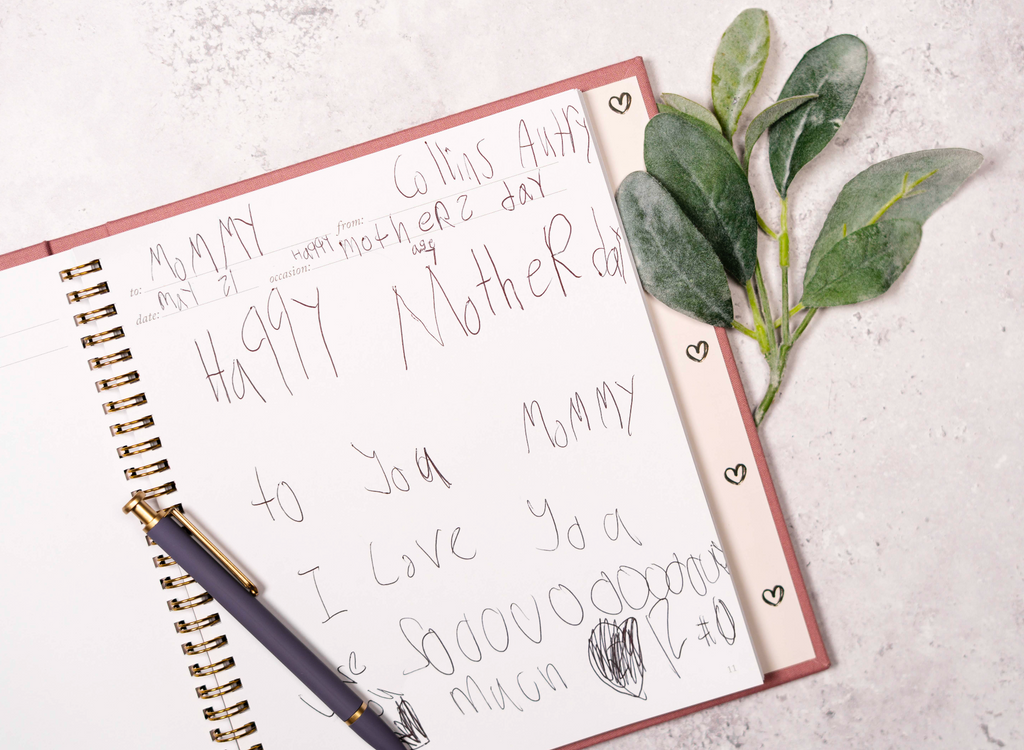 to: MoMMY from: Collins Autry
date: May 12 occasion: Happy MotheR2 day
age
Happy MotheR day
to Yoa MoMMY
I Love Yoa
Soooooooooooooo
Much 12 #0
11